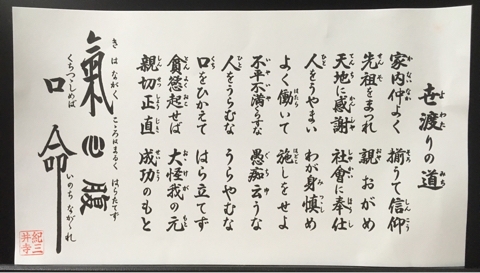 世渡りの道
家内仲よく 揃うて信仰
先祖をまつれ 親おがめ
天地に感謝 社會に奉仕
人をうやまい わが身慎め
よく働いて 施しをせよ
不平不満らすな 愚痴云うな
人をうらむな うらやむな
口をひかえて はら立てず
貪慾起せば 大怪我の元
親切正直 成功のもと
きはながく こころはまるく はらたてず
氣 心 腹
くちつゝしめば いのちながゝれ
口 命
紀三井寺